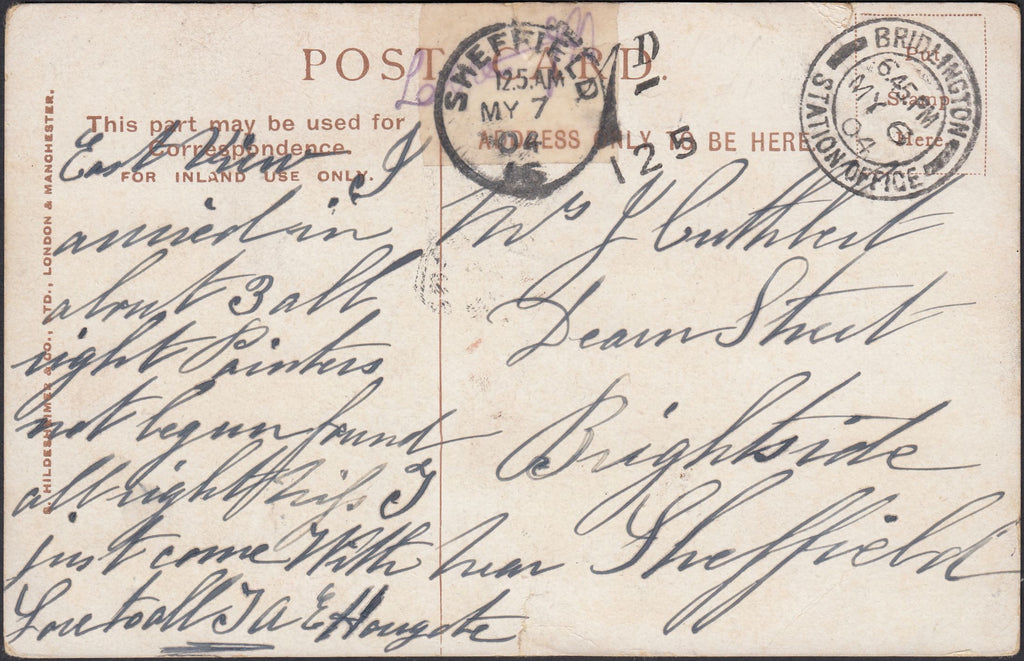 POST CARD.
This part may be used for
Correspondence
FOR INLAND USE ONLY.
ADDRESS ONLY TO BE HERE.
Stamp
Here
SHEFFIELD
12.5.AM
MY 7
04
1D
125
BRIDLINGTON
STATION OFFICE
6.45.PM
MY 6
04
HILDESHEIMER & CO., LTD., LONDON & MANCHESTER.
East View I
arrived in
about 3 all
right Painters
not begun found
all right Miss J
just come With her
Love to all J A E Hougate
Mrs J Cuthbert
Dearn Street
Brightside
Sheffield